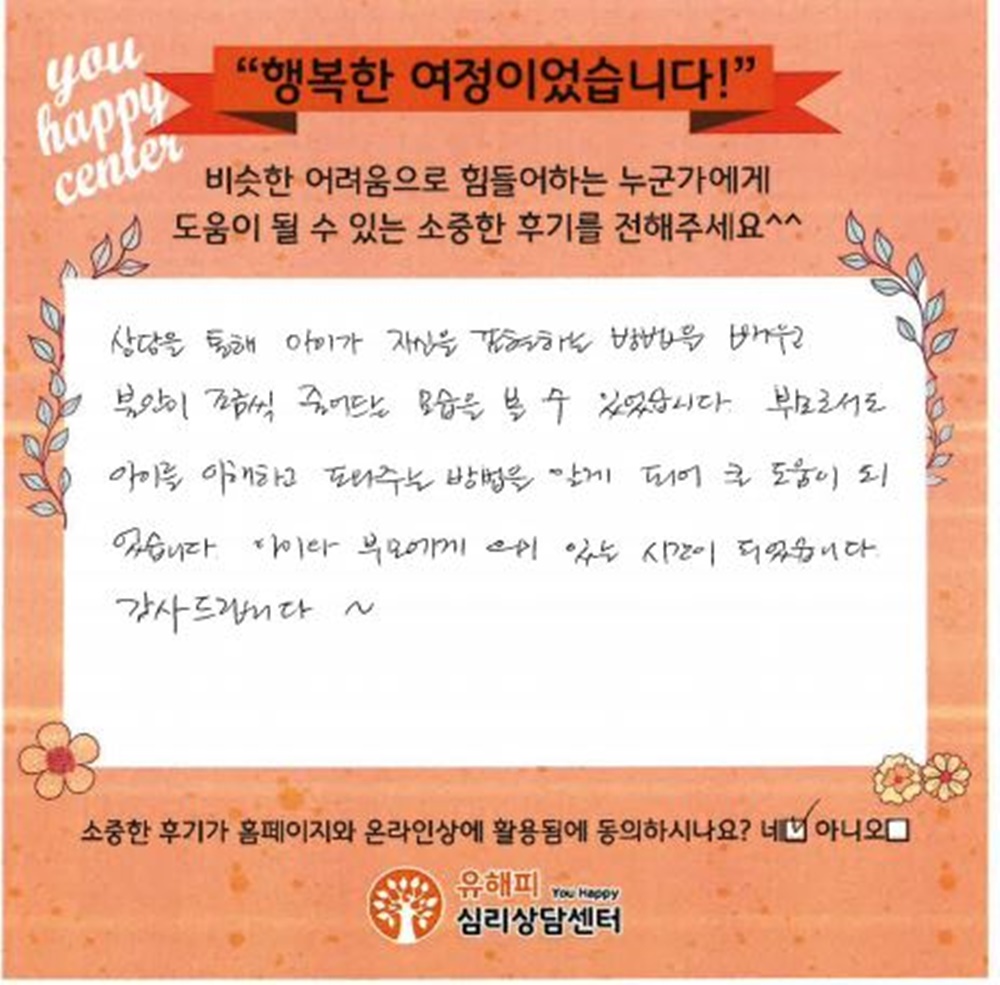 you
happy
center
“행복한 여정이었습니다!”
비슷한 어려움으로 힘들어하는 누군가에게
도움이 될 수 있는 소중한 후기를 전해주세요^^
상담을 통해 아이가 자신을 표현하는 방법을 배우고
불안이 조금씩 줄어드는 모습을 볼 수 있었습니다. 부모로서도
아이를 이해하고 도와주는 방법을 알게 되어 큰 도움이 되
었습니다. 아이와 부모에게 의미 있는 시간이 되었습니다.
감사드립니다 ~
소중한 후기가 홈페이지와 온라인상에 활용됨에 동의하시나요? 네☑ 아니오☐
유해피 You Happy
심리상담센터